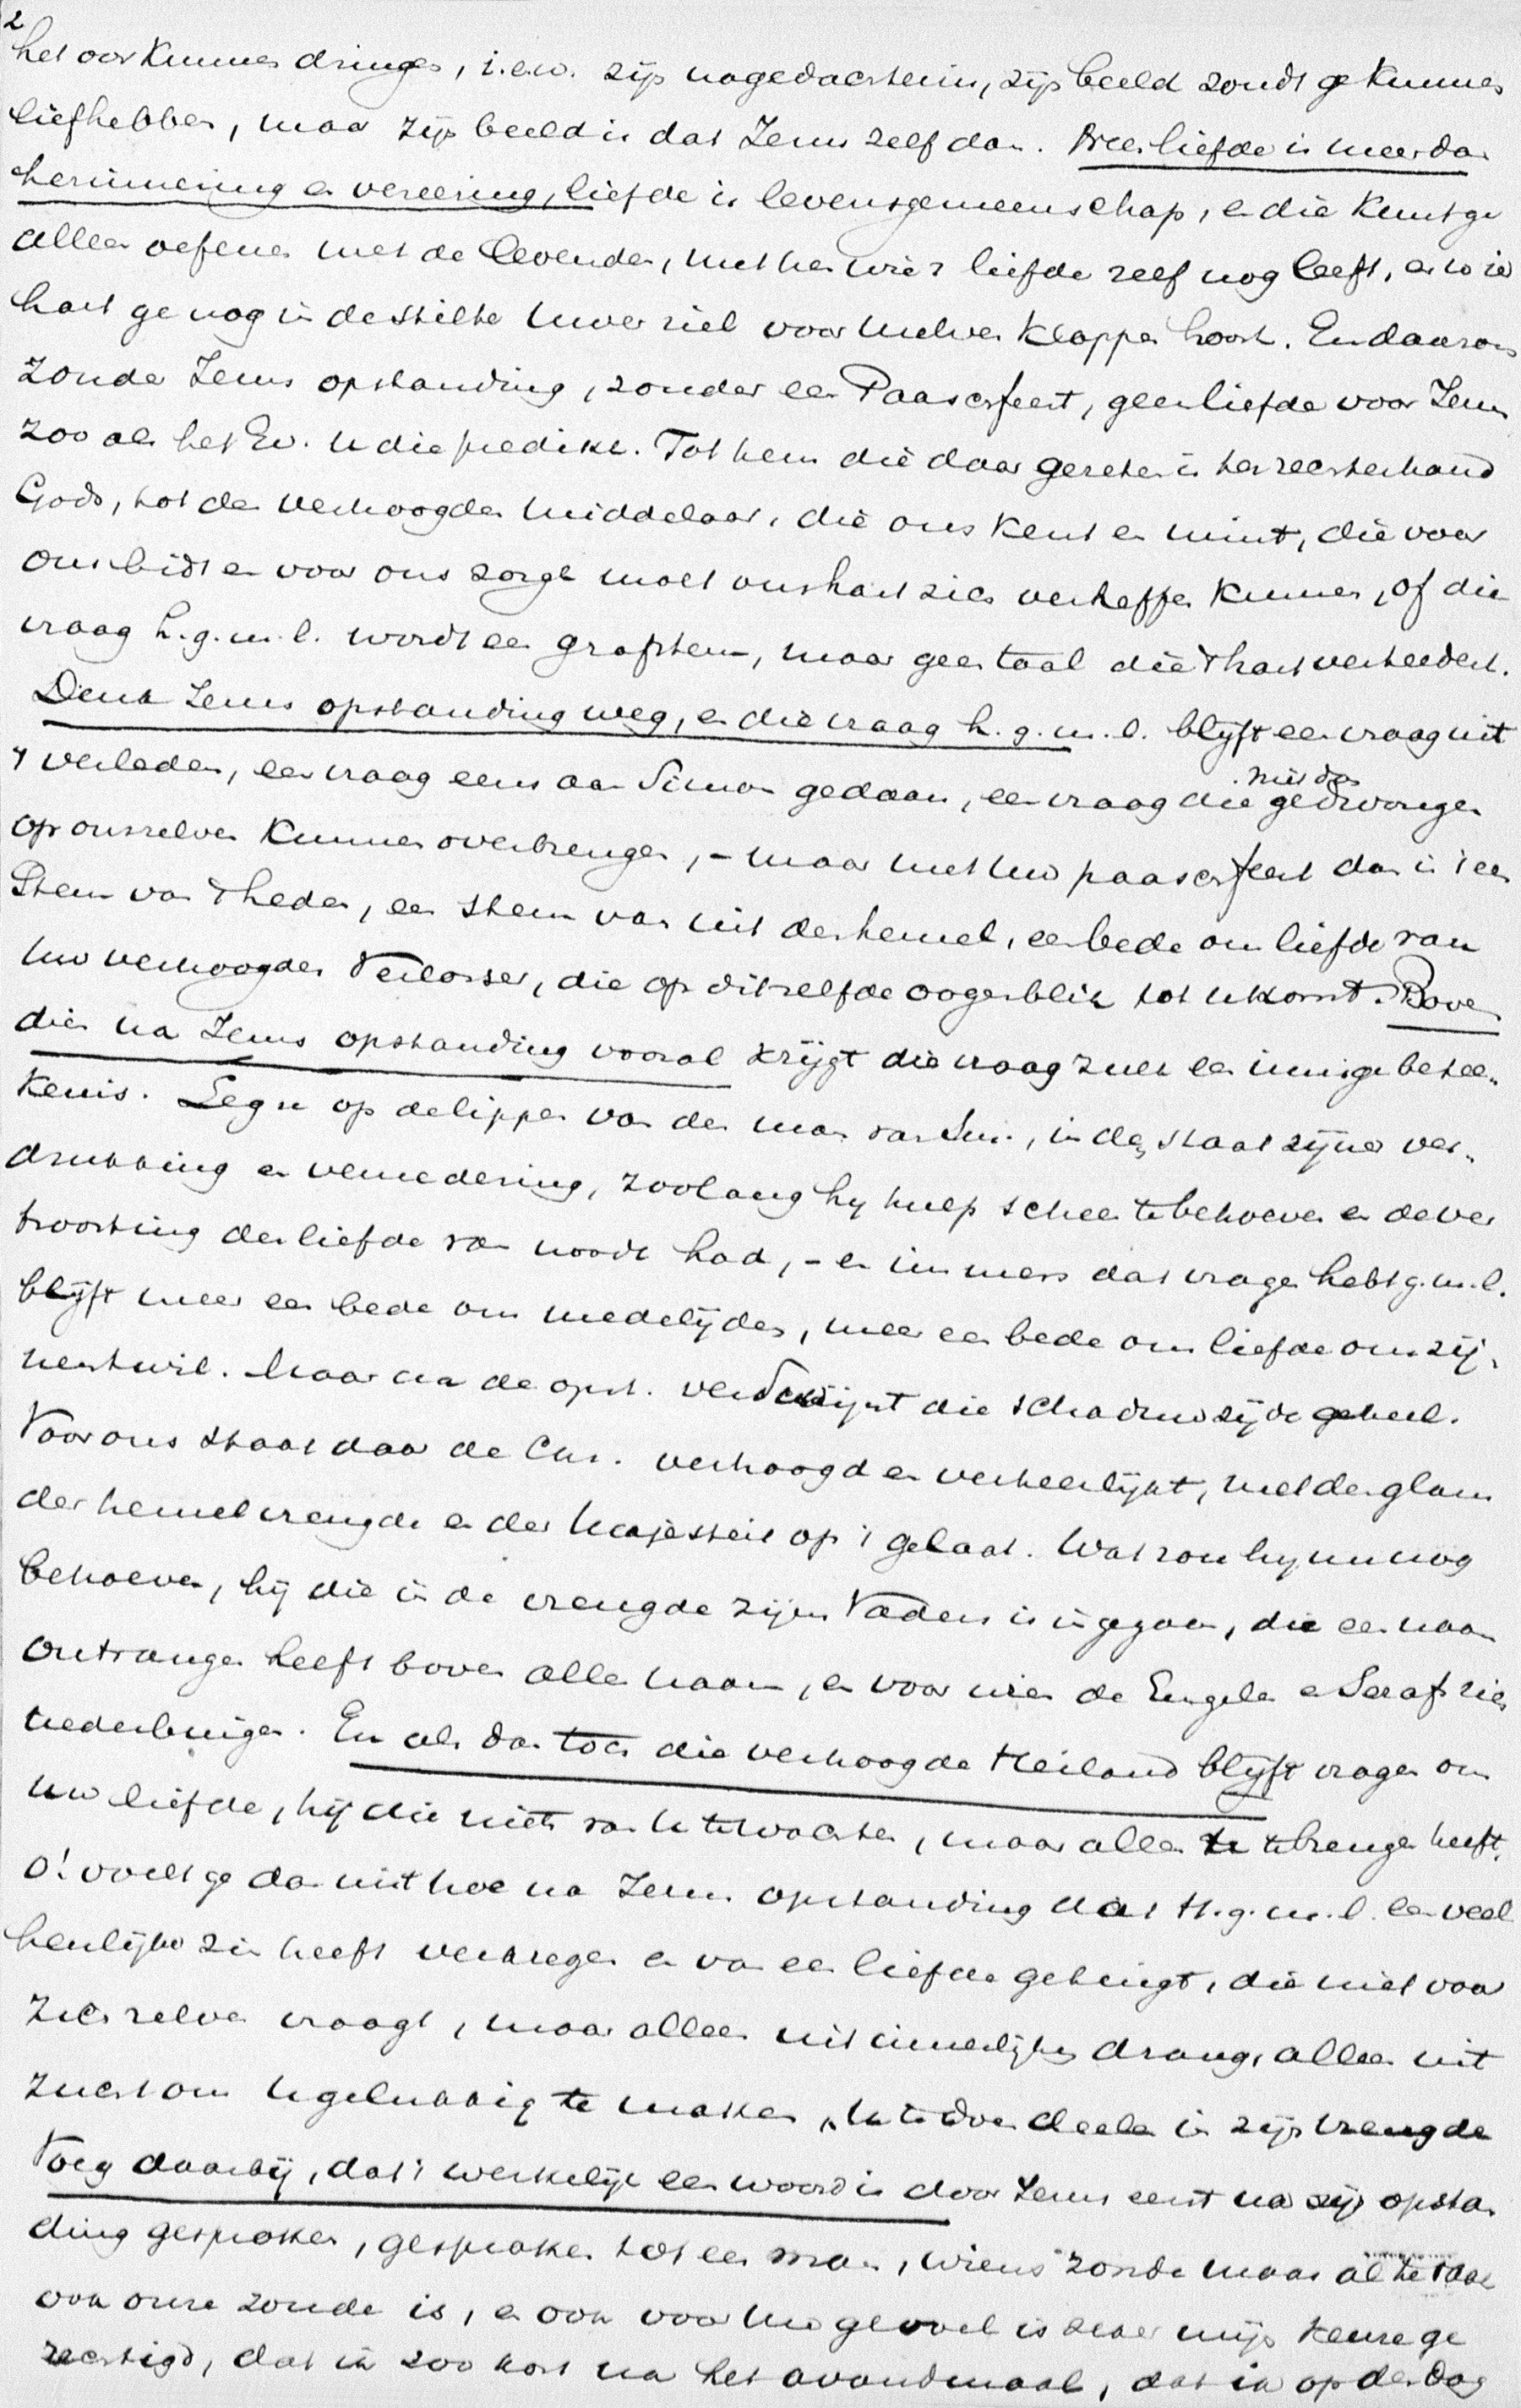 2
het oor kunnen dringen, i.e.w. zijn nagedachtenis, zijn beeld zoudt ge kunnen
liefhebben, maar zijn beeld is dat Jezus zelf dan. Neen liefde is meer dan
herinnering en vereering, liefde is levensgemeenschap, en die kunt ge
alleen oefenen met de levenden, met hen wier liefde zelf nog leeft, en wier
hart ge nog in de stilte uwer ziel voor uzelven kloppen hoort. En daarom
zonder Jezus opstanding, zonder een Paaschfeest, geen liefde voor Jezus
zooals het Ev. u die predikt. Tot hem die daar gezeten is ter rechterhand
Gods, tot den verhoogden Middelaar, die ons kent en mint, die voor
ons bidt en voor ons zorgt moet ons hart zich verheffen kunnen, of die
vraag h.g.m.l. wordt een grafstem, maar geen taal die 't hart verteedert.
Denk Jezus opstanding weg, en die vraag h.g.m.l. blijft een vraag uit
't verleden, een vraag eens aan Simon gedaan, een vraag die niet dan gedwongen
op onszelven kunnen overbrengen, - maar met uw paaschfeest dan is 't een
Stem van 't heden, een stem van uit den hemel, een bede om liefde van
uw verhoogden Verlosser, die op ditzelfde oogenblik tot u komt. Boven
dien na Jezus opstanding vooral krijgt die vraag zulk een innige betee„
kenis. Leg ze op de lippen van den man van Smn., in den staat zijner ver„
drukking en vernedering, zoolang hij hulp scheen te behoeven en de ver
troosting der liefde van noode had, - en immers dat vragen hebt g.m.l.
blijft meer een bede om medelijden, meer een bede om liefde om zij„
nentwil. Maar na de opst. verdwijnt die schaduwzijde geheel.
Voor ons staat daar de Chr. verhoogd en verheerlijkt, met den glans
der hemelvreugde en der Majesteit op 't gelaat. Wat zou hij nu nog
behoeven, hij die in de vreugde zijns Vaders is ingegaan, die een naam
ontvangen heeft boven alle naam, en voor wien de Engelen en Serafs zich
nederbuigen. En als dan toch die verhoogde Heiland blijft vragen om
uw liefde, hij die niets van u te wachten, maar alles u te brengen heeft,
o! voelt ge dan niet hoe na Jezus opstanding dat H.g.m.l. een veel
heerlijker zin heeft verkregen en van een liefde getuigt, die niet voor
zichzelven vraagt, maar alleen uit innerlijken drang, alleen uit
zucht om u gelukkig te maken, u te doen deelen in zijn vreugde
Voeg daarbij, dat 't werkelijk een woord is door Jezus eerst na zijn opstan
ding gesproken, gesproken tot een man, wiens zonde maar al te vaak
ook onze zonde is, en ook voor uw gevoel is zeker mijn keuze ge
rechtigd, dat ik zoo kort na het avondmaal, dat ik op den dag